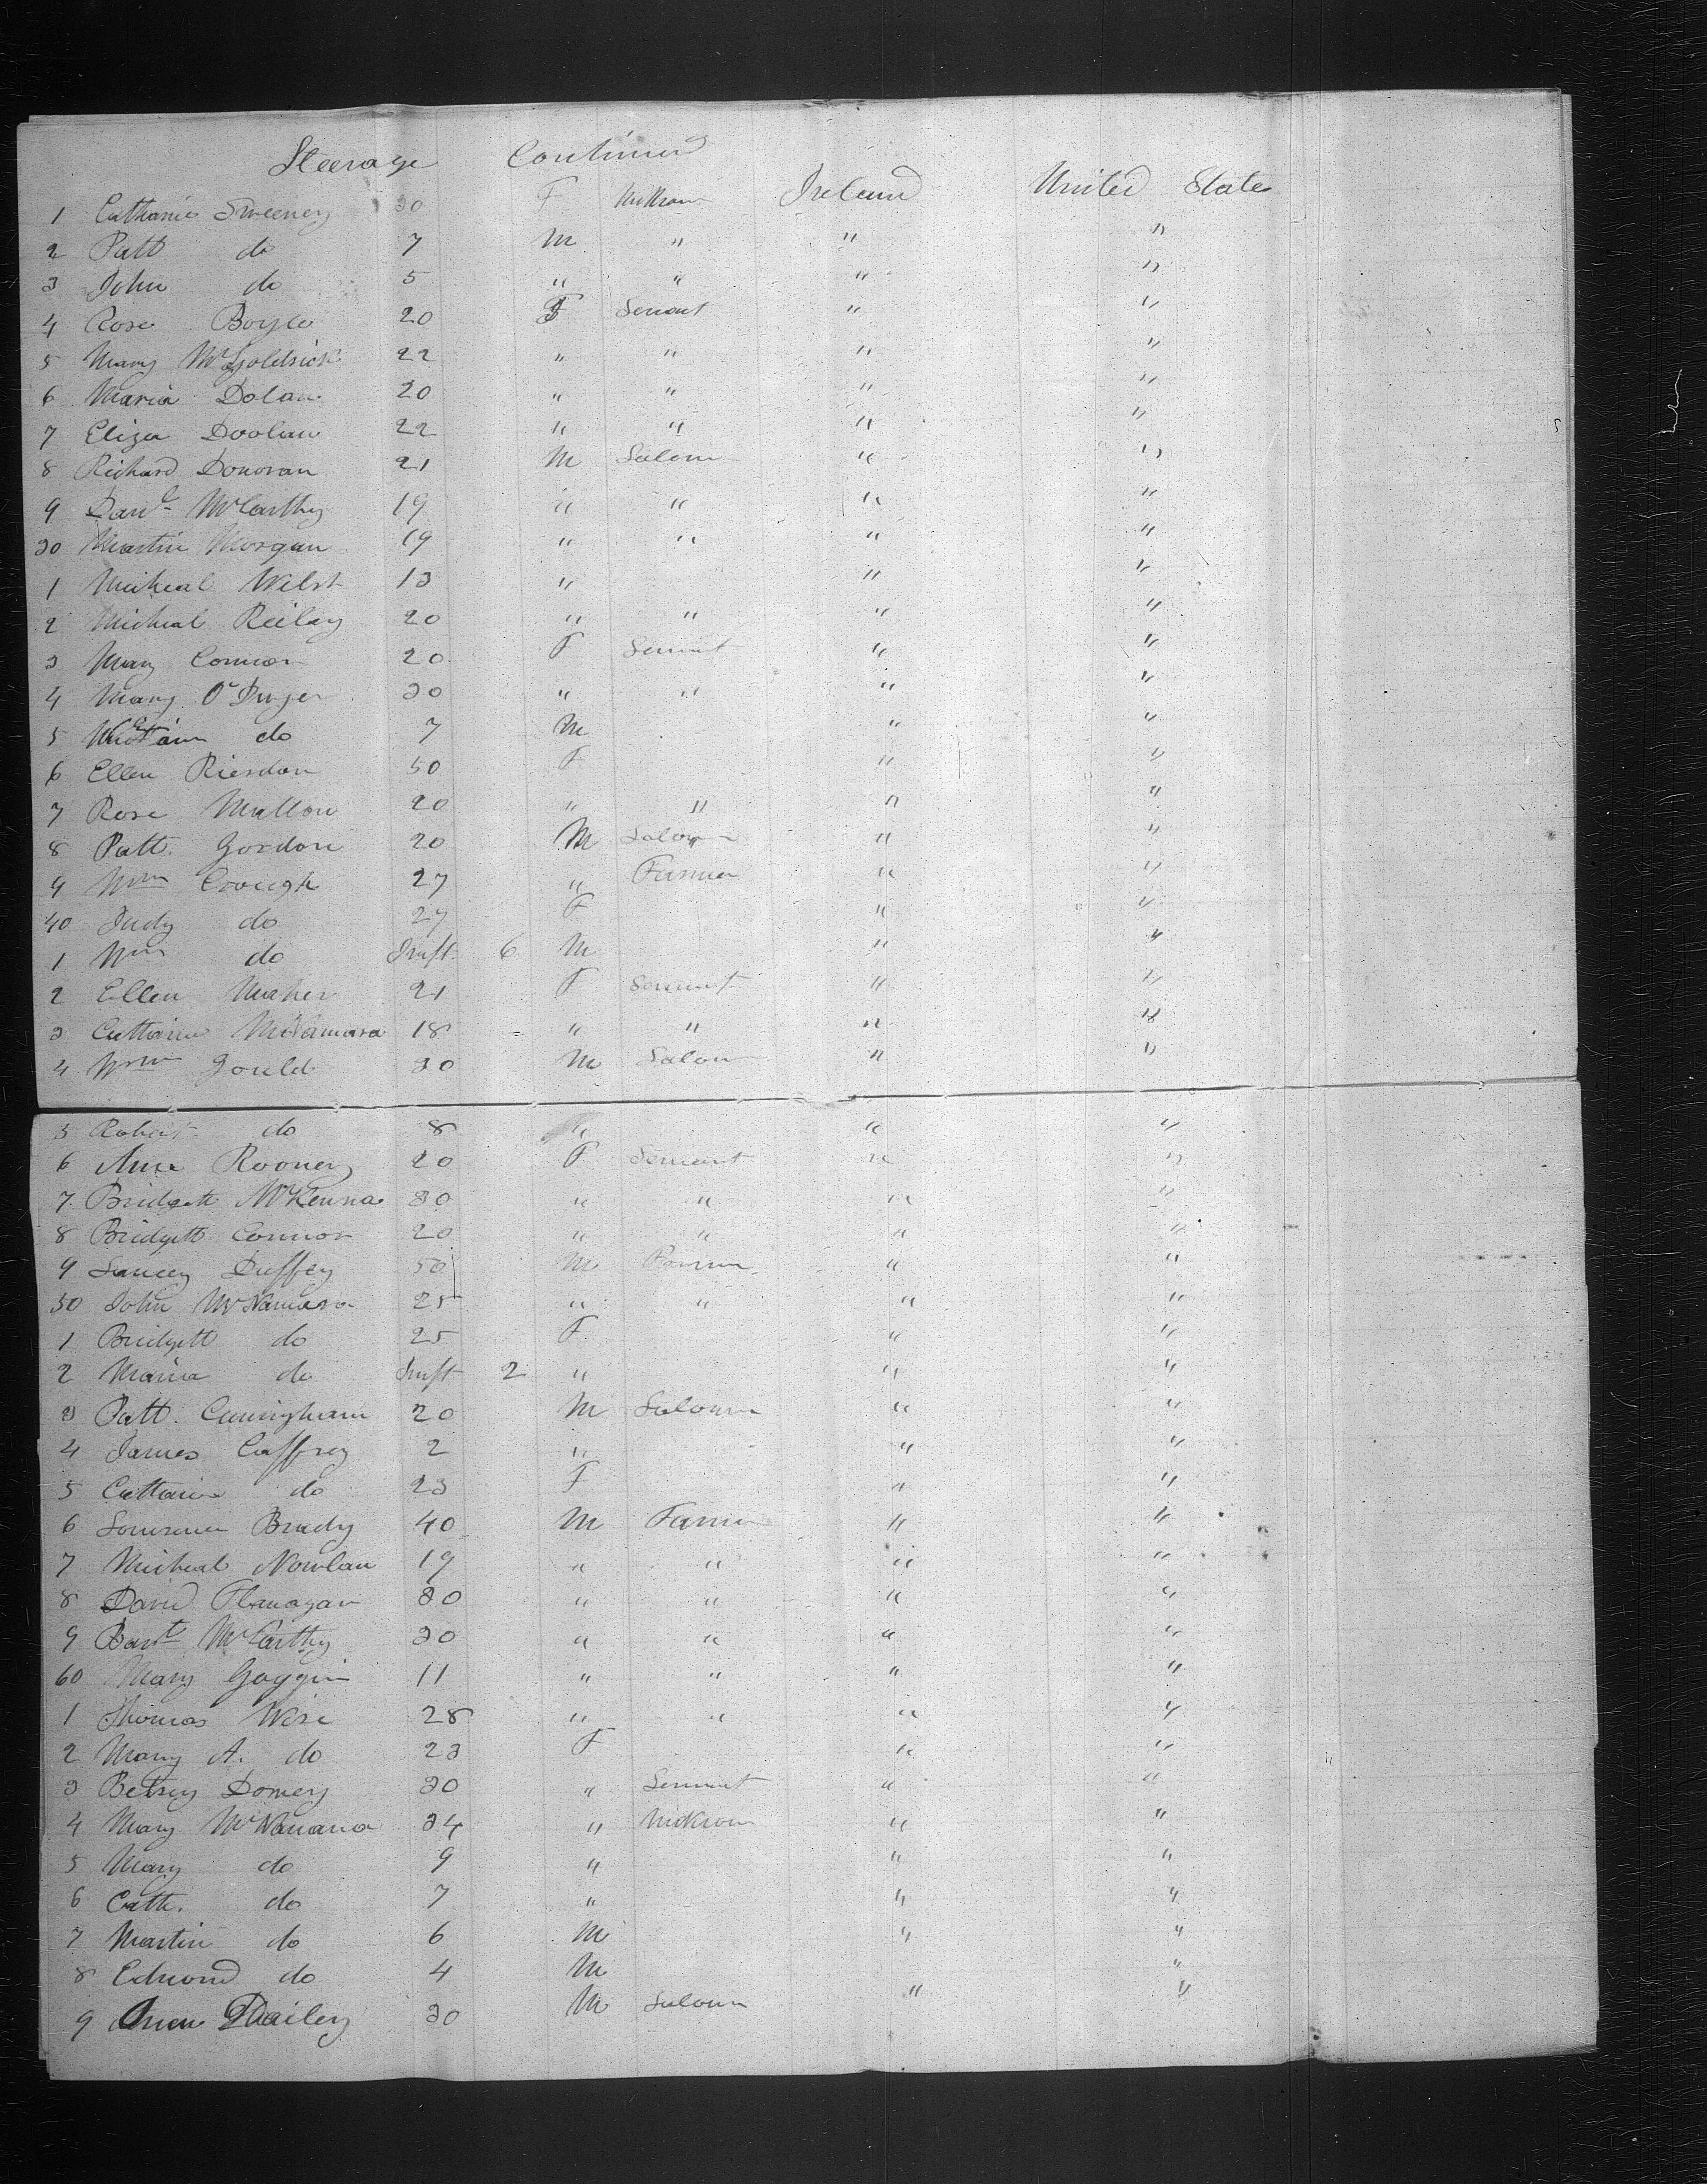 Steerage Continued
1 Catharine Sweeney 30 F Unknown Ireland United States
2 Patt do 7 M " " "
3 John do 5 " " " "
4 Rose Boyle 20 F Servant " "
5 Mary McGoldrick 22 " " " "
6 Maria Dolan 20 " " " "
7 Eliza Doolan 22 " " " "
8 Richard Donovan 21 M " "
9 Danl McCarthy 19 " " " "
30 Martin Morgan 19 " " " "
1 Micheal Welsh 13 " " "
2 Micheal Reiley 20 " " " "
3 Mary Connor 20 F Servant " "
4 Mary O'Dwyer 30 " " " "
5 do 7 M " "
6 Ellen Riesdon 50 F " "
7 Rose Mallon 20 " " " "
8 Patt. Gordon 20 M " "
9 Wm Crough 27 " Farmer " "
40 Judy do 27 F " "
1 Wm do Inft. 6 M " "
2 Ellen Maher 21 F Servant " "
3 Catharine McNamara 18 " " " "
4 Wm Gould 30 M " "
5 Robert do 8 " " "
6 Ann Rooney 20 F Servant " "
7 Bridgett McKenna 30 " " " "
8 Bridgett Connor 20 " " " "
9 Duffey 50 M Farmer " "
50 John McNamara 25 " " " "
1 Bridgett do 25 F " "
2 Maria do Inft 2 " " "
3 Patt. Cuningham 20 M " "
4 James Caffrey 2 " " "
5 Catharine do 23 F " "
6 Brady 40 M Farmer " "
7 Micheal Nowlan 19 " " " "
8 David Flanagan 30 " " " "
9 Bart McCarthy 30 " " " "
60 Mary Goggin 11 " " " "
1 Thomas Wise 28 " " " "
2 Mary A. do 23 F " "
3 Betsey Domey 30 " Servant " "
4 Mary McNamara 34 " Unknown " "
5 Mary do 9 " " "
6 Cath. do 7 " " "
7 Martin do 6 M " "
8 Edmond do 4 M "
9 Dailey 30 M " "